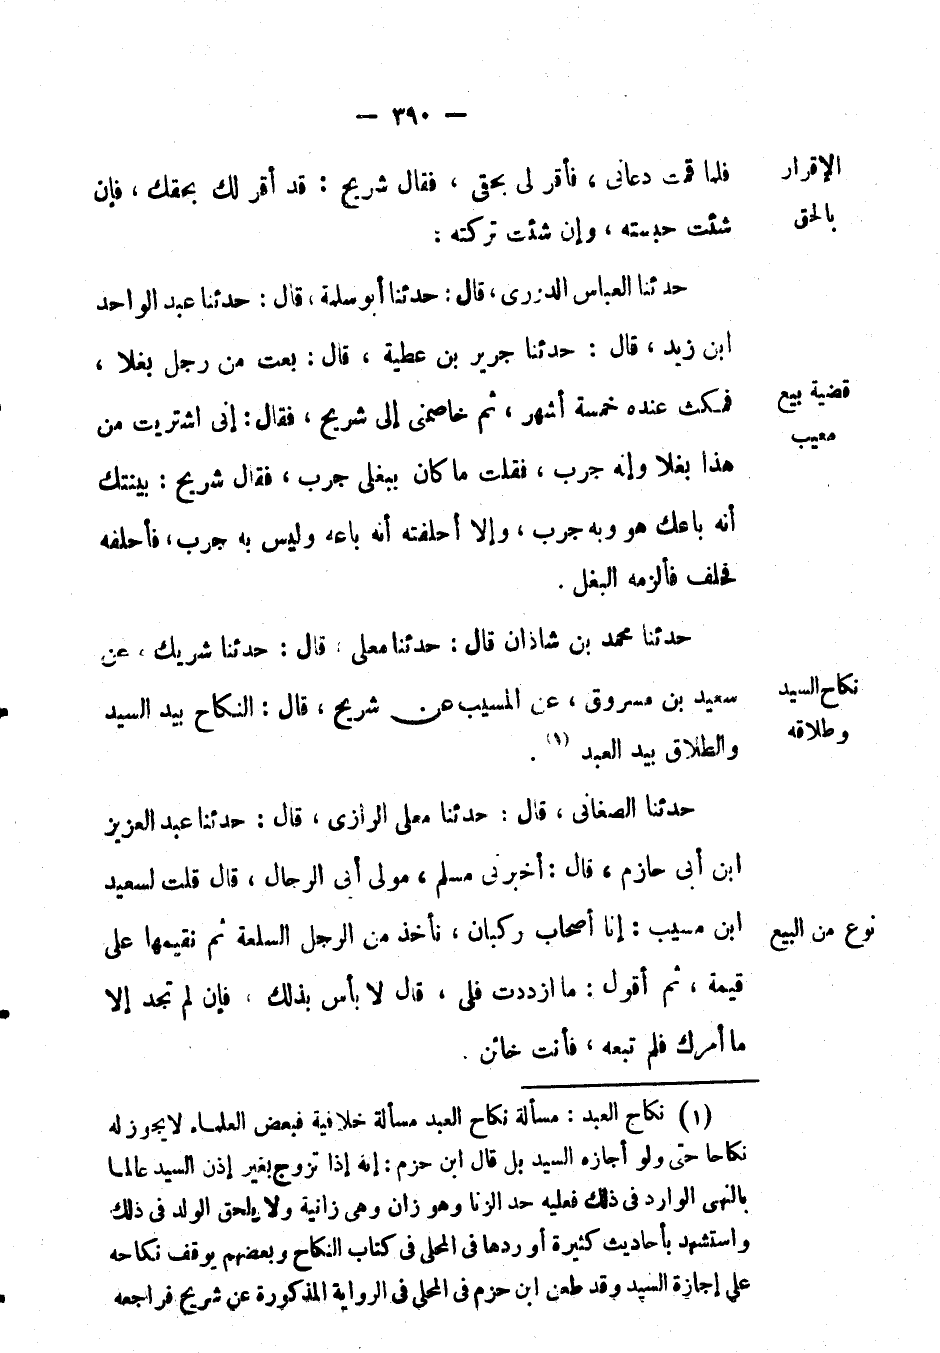 — ٣٩٠ —
الإقرار
بالحق
فلما قمت دعانى ، فأقر لى بحقى ، فقال شريح : قد أقر لك بحقك ، فإن
شئت حبسته ، وإن شئت تركته :
حدثنا العباس الدورى ، قال : حدثنا أبو سلمة ، قال : حدثنا عبد الواحد
ابن زيد ، قال : حدثنا جرير بن عطية ، قال : بعت من رجل بغلا ،
قضية بيع
معيب
فمكث عنده خمسة أشهر ، ثم خاصمنى إلى شريح ، فقال : إنى اشتريت من
هذا بغلا وإنه جرب ، فقلت ما كان ببغلى جرب ، فقال شريح : بينتك
أنه باعك هو وبه جرب ، وإلا أحلفته أنه باعه وليس به جرب ، فأحلفه
فحلف فألزمه البغل .
حدثنا محمد بن شاذان قال : حدثنا معلى ، قال : حدثنا شريك ، عن
نكاح السيد
وطلاقه
سعيد بن مسروق ، عن المسيب عن شريح ، قال : النكاح بيد السيد
والطلاق بيد العبد (١) .
حدثنا الصغانى ، قال : حدثنا معلى الرازى ، قال : حدثنا عبد العزيز
ابن أبى حازم ، قال : أخبرنى مسلم ، مولى أبى الرجال ، قال قلت لسعيد
نوع من البيع
ابن مسيب : إنا أصحاب ركبان ، نأخذ من الرجل السلعة ثم نقيمها على
قيمة ، ثم أقول : ما ازددت فلى ، قال لا بأس بذلك ، فإن لم تجد إلا
ما أمرك فلم تبعه ، فأنت خائن .
(١) نكاح العبد : مسألة نكاح العبد مسألة خلافية فبعض العلماء لا يجوز له
نكاحا حتى ولو أجازه السيد بل قال ابن حزم : إنه إذا تزوج بغير إذن السيد عالما
بالنهى الوارد فى ذلك فعليه حد الزنا وهو زان وهى زانية ولا يلحق الولد فى ذلك
واستشهد بأحاديث كثيرة أوردها فى المحلى فى كتاب النكاح وبعضهم يوقف نكاحه
على إجازة السيد وقد طعن ابن حزم فى المحلى فى الرواية المذكورة عن شريح فراجعه